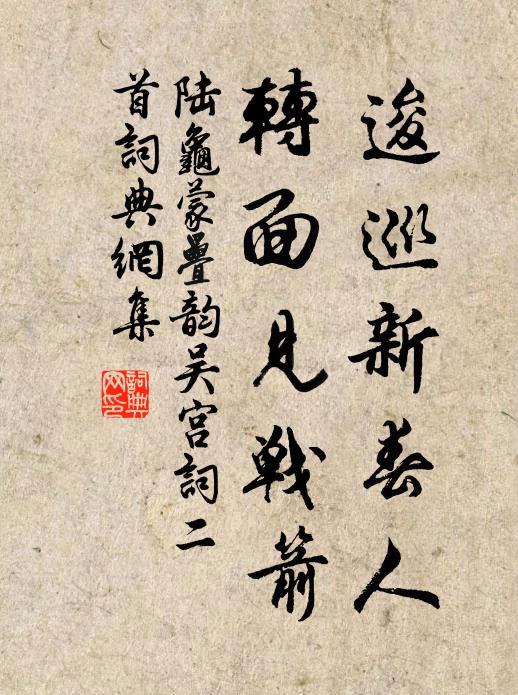 逡巡新春人
轉面見戰箭
陆龜蒙疊韵吴宫詞二
首詞典網集
詞典
网印